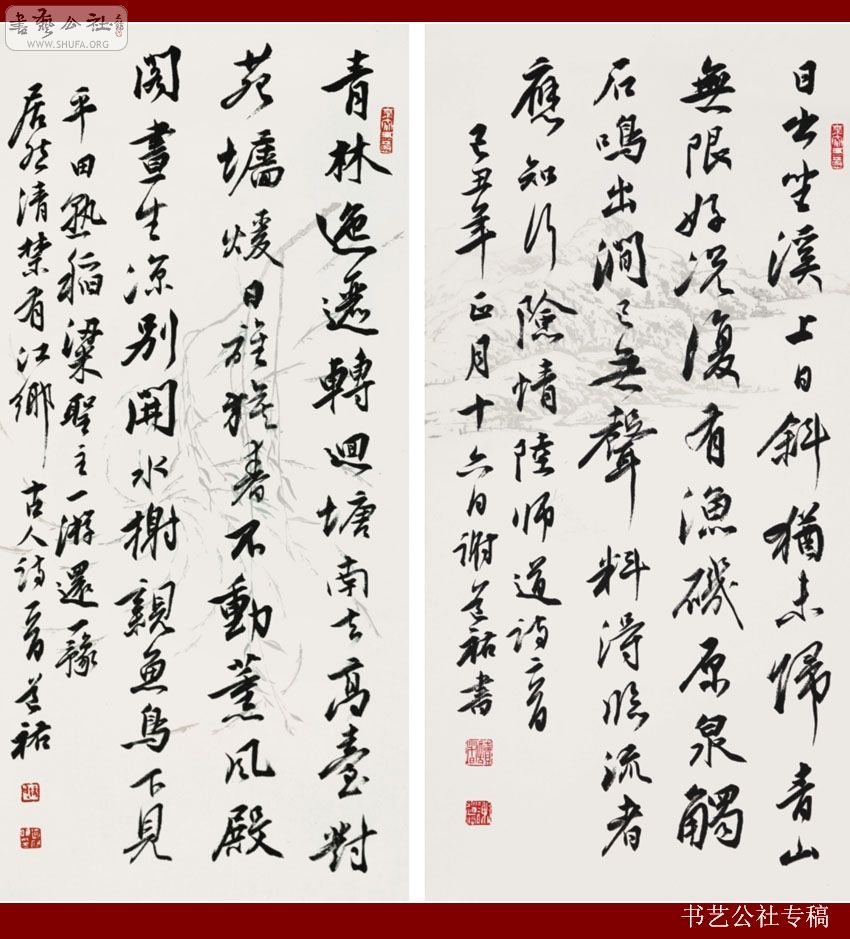 書藝公社
WWW.SHUFA.ORG
日出坐溪上日斜猶未歸青山
無限好況復有漁磯原泉觸
石鳴出澗已無聲料得臨流者
應知行險情陸師道詩二首
己丑年正月十六日謝祐書
青林迤邐轉迴塘南去高臺對
苑墻煖日旌旗春不動薰風殿
閣晝生涼別開水榭親魚鳥下見
平田熟稻粱聖主一游還一豫
居然清禁有江鄉 古人詩一首祐
书艺公社专稿